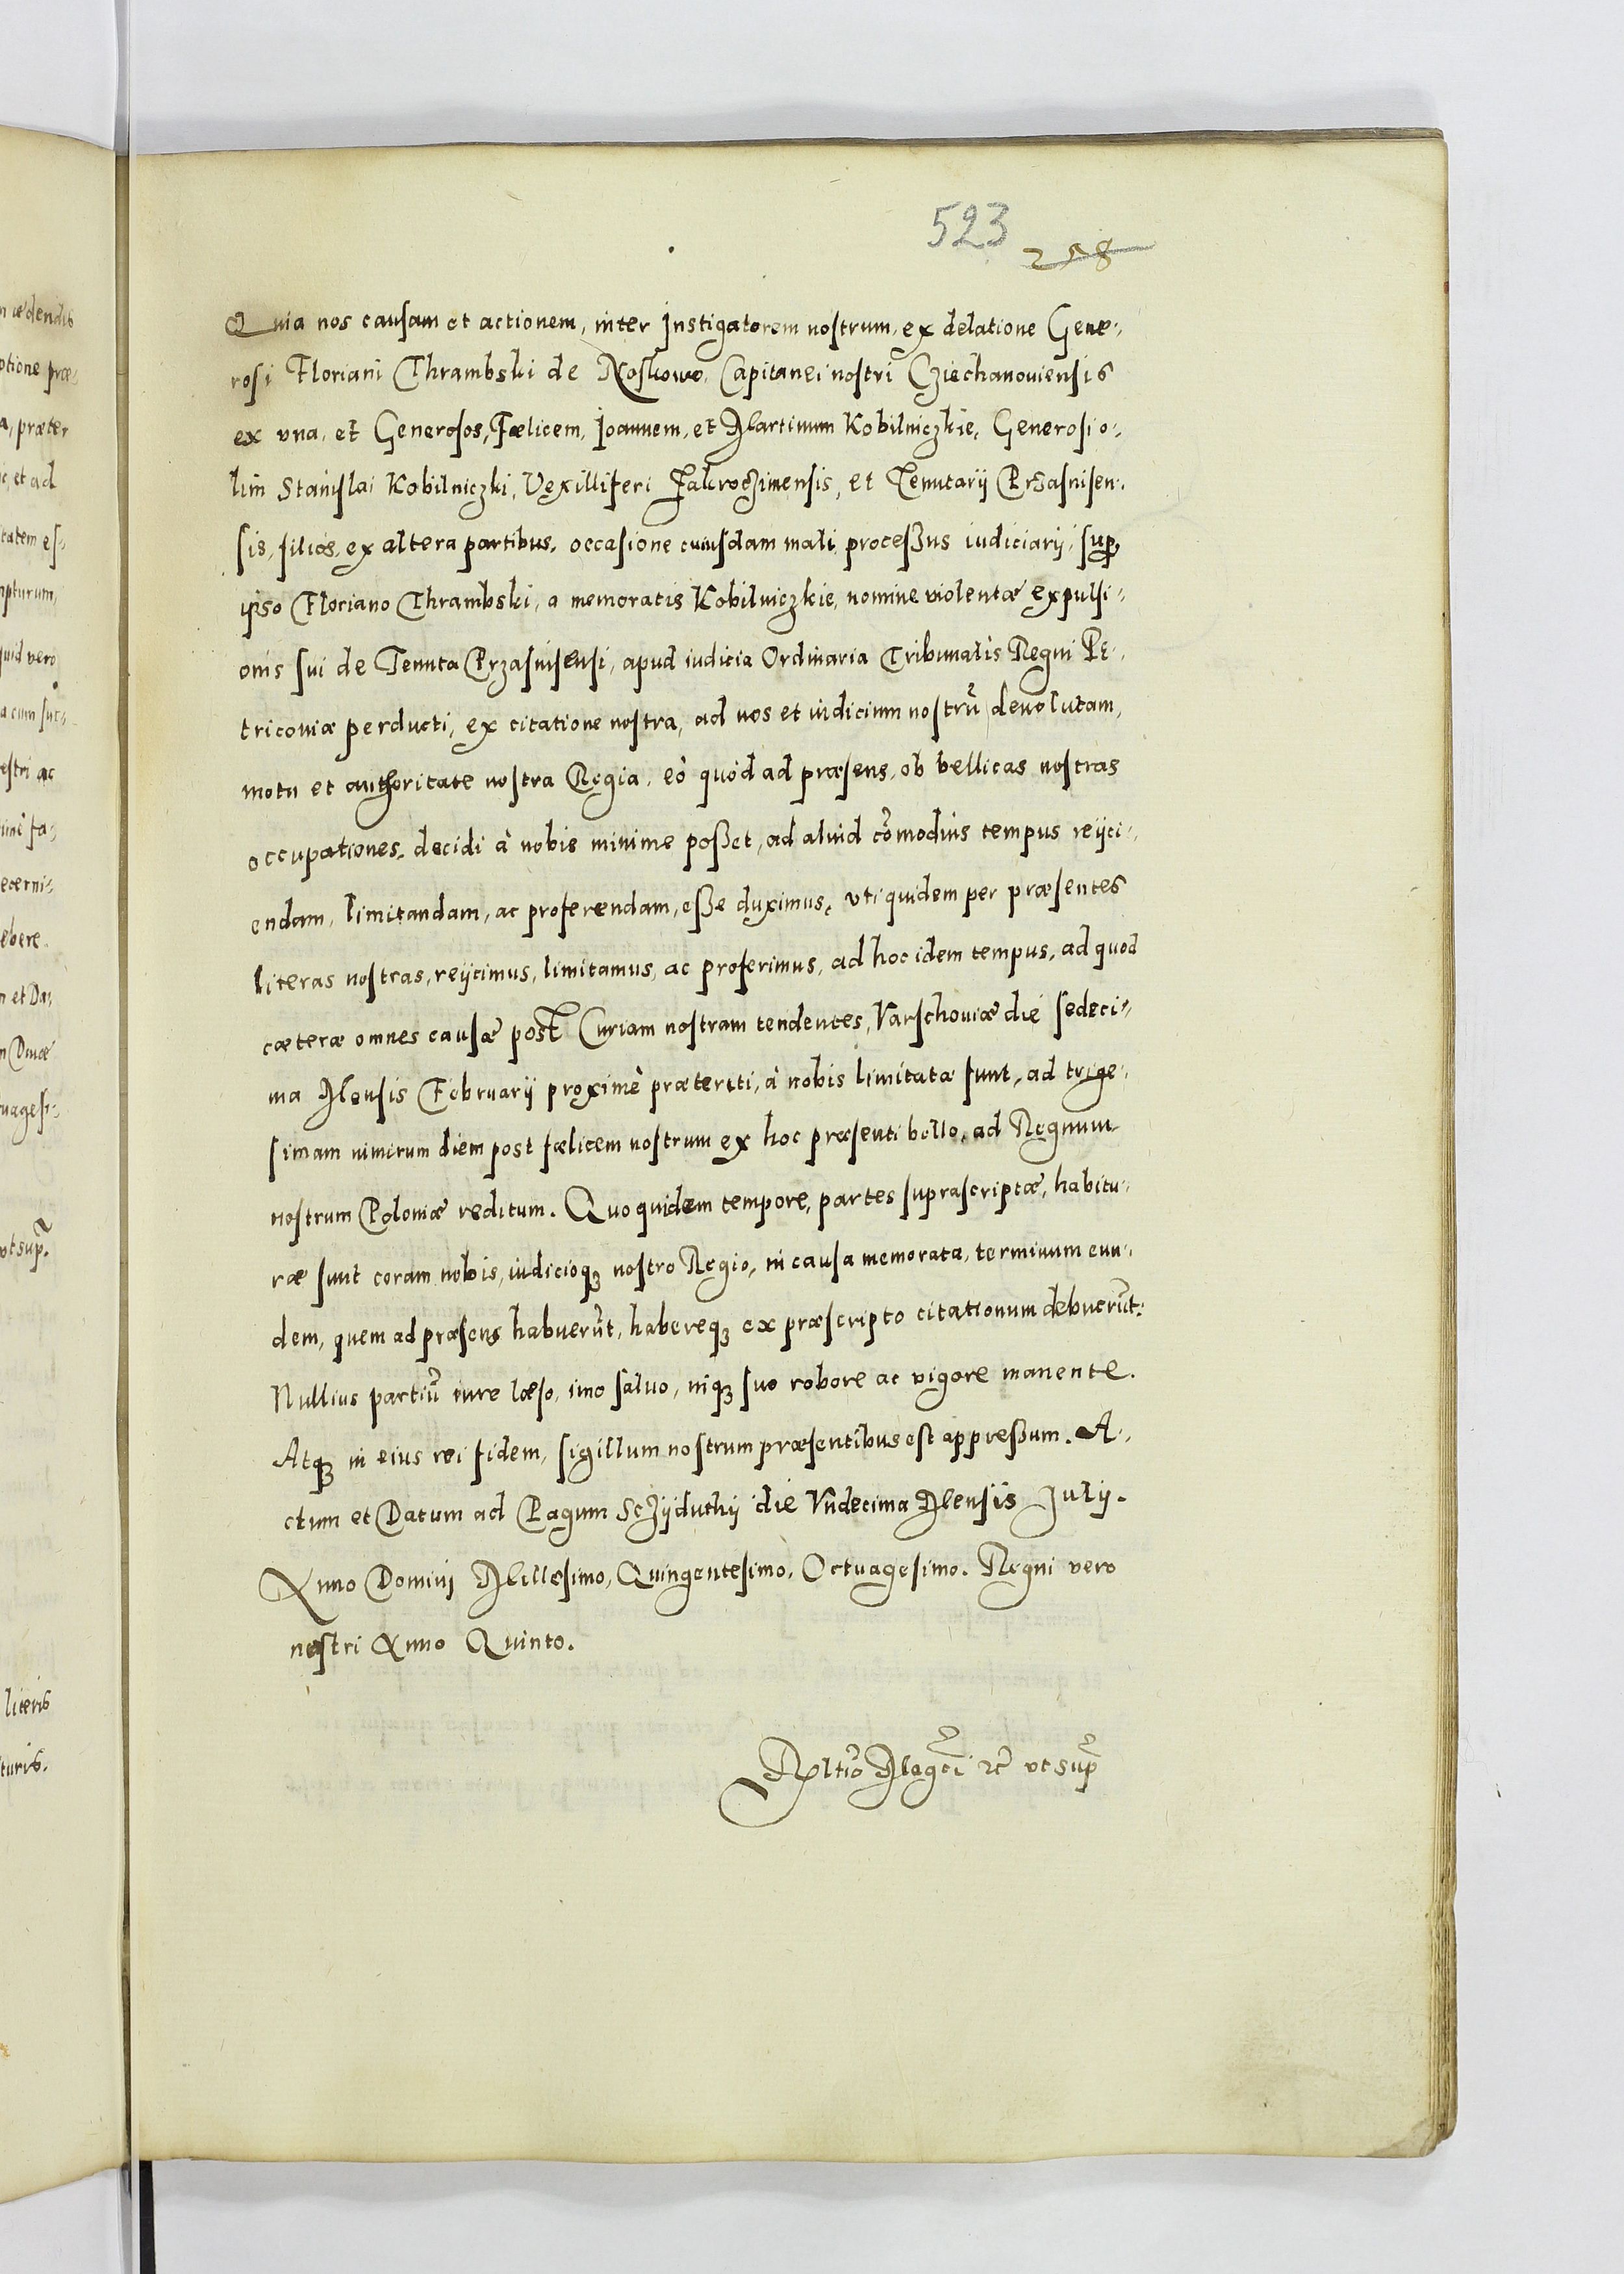 523
258
Quia nos causam et actionem, inter Instigatorem nostrum, ex delatione Gene-
rosi Floriani Thrambski de Noskowo, Capitanei nostri Cziechanouiensis
ex vna, et Generosos, Fœlicem, Ioannem, et Martinum Kobilniczkie, Generosi o-
lim Stanislai Kobilniczki, Vexilliferi Zakroczimensis, et Tenutarij Przasnisen-
sis, filios, ex altera partibus, occasione cuiusdam mali processus iudiciarij, sup
ipso Floriano Thrambski, a memoratis Kobilniczkie, nomine violentæ expulsi-
onis sui de Tenuta Przasnisensi, apud iudicia Ordinaria Tribunalis Regni Pe-
tricouiæ perducti, ex citatione nostra, ad nos et iudicium nostrũ deuolutam,
motu et authoritate nostra Regia, eò quòd ad præsens, ob bellicas nostras
occupationes, decidi à nobis minime posset, ad aliud cõmodius tempus reijci-
endam, limitandam, ac proferendam, esse duximus, vti quidem per præsentes
literas nostras, reijcimus, limitamus, ac proferimus, ad hoc idem tempus, ad quod
cæteræ omnes causæ post Curiam nostram tendentes, Varschouiæ die sedeci-
ma Mensis Februarij proximè præteriti, à nobis limitatæ sunt, ad trige-
simam nimirum diem post fœlicem nostrum ex hoc præsenti bello, ad Regnum
nostrum Poloniæ reditum. Quo quidem tempore, partes suprascriptæ, habitu-
ræ sunt coram nobis, iudicioq3 nostro Regio, in causa memorata, terminum eun-
dem, quem ad præsens habuerũt, habereq3 ex præscripto citationum debuerũt:
Nullius partiũ iure læso, imo saluo, inq3 suo robore ac vigore manente.
Atq3 in eius rei fidem, sigillum nostrum præsentibus est appressum. A-
ctum et Datum ad Pagum Sczijduthij die Vndecima Mensis Julij.
Anno Domini Millesimo, Quingentesimo, Octuagesimo. Regni vero
nostri Anno Quinto.
vt sup